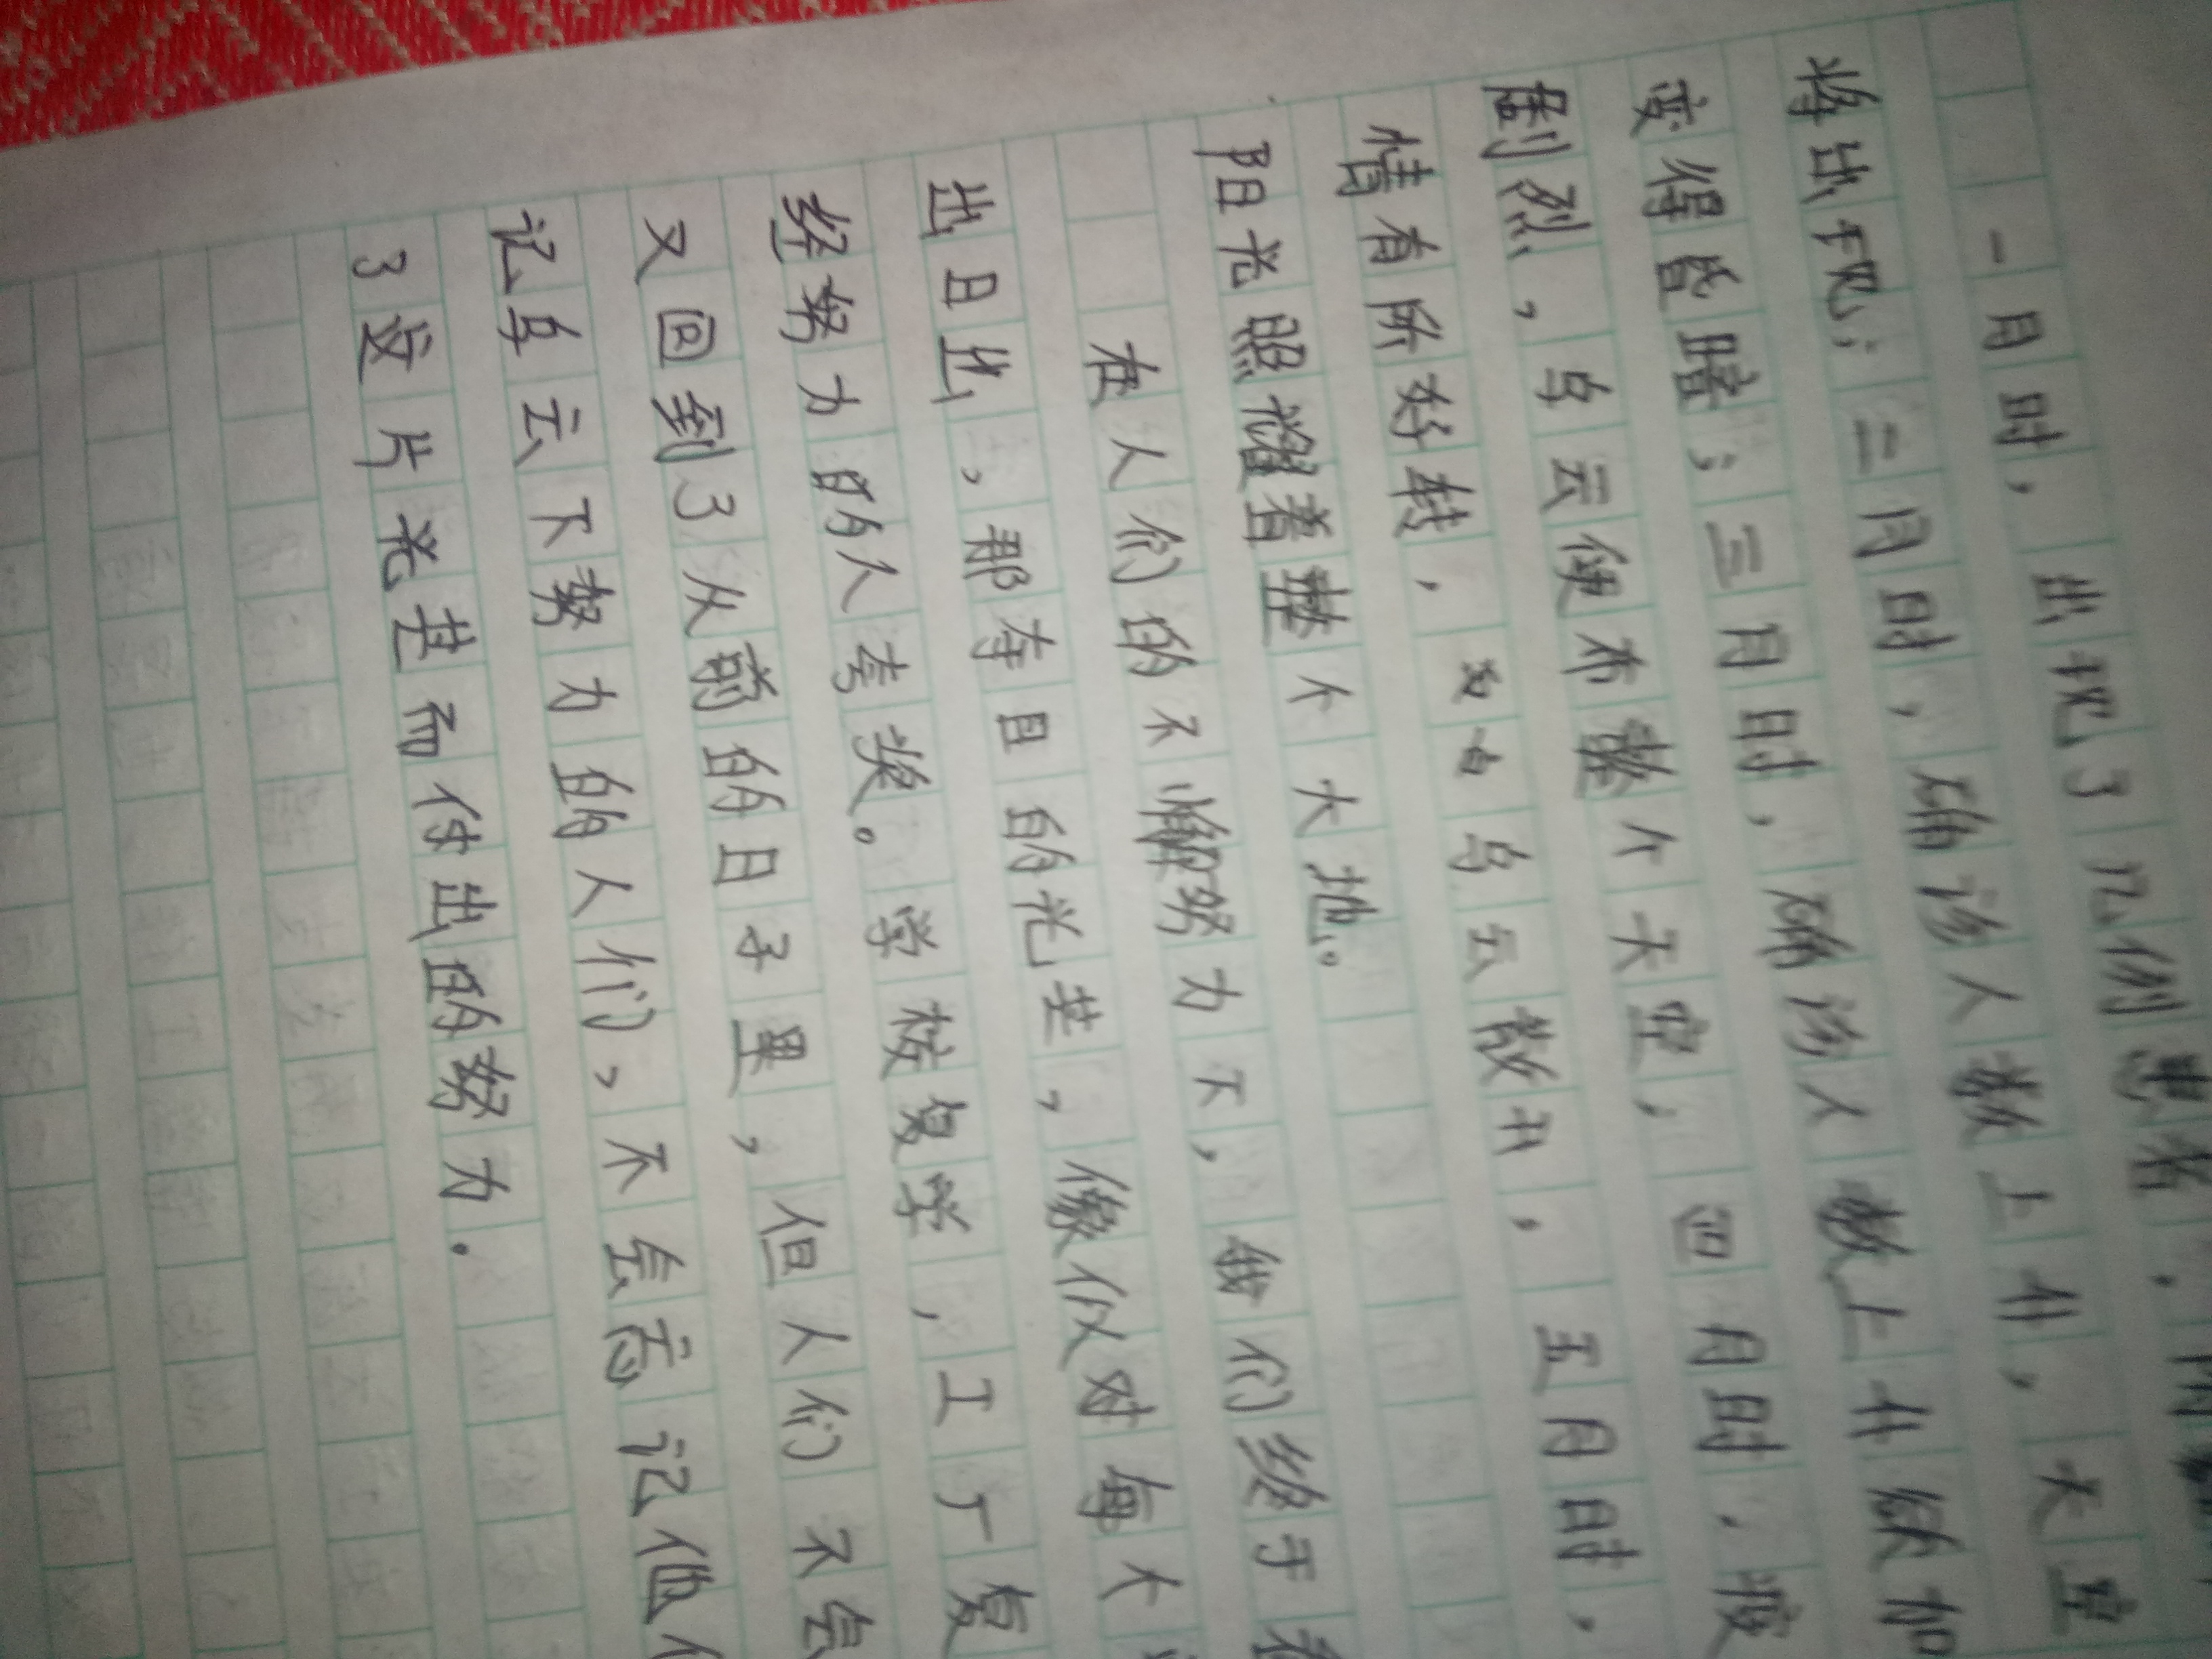 一月时，出现了几例患者，阴
将出现；二月时，确诊人数上升，天空
变得昏暗；三月时，确诊人数上升领加
剧烈，乌云便布整个天空，四月时，疫
情有所好转，乌云散开，五月时，
阳光照耀着整个大地。
在人们的不懈努力下，我们终于看
出日出，那夺目的光芒，像仪对每个
经努力的人夸奖。学校复学，工厂复
又回到了从前的日子里，但人们不会
记乌云下努力的人们，不会忘记他们
了这片光芒而付出的努力．